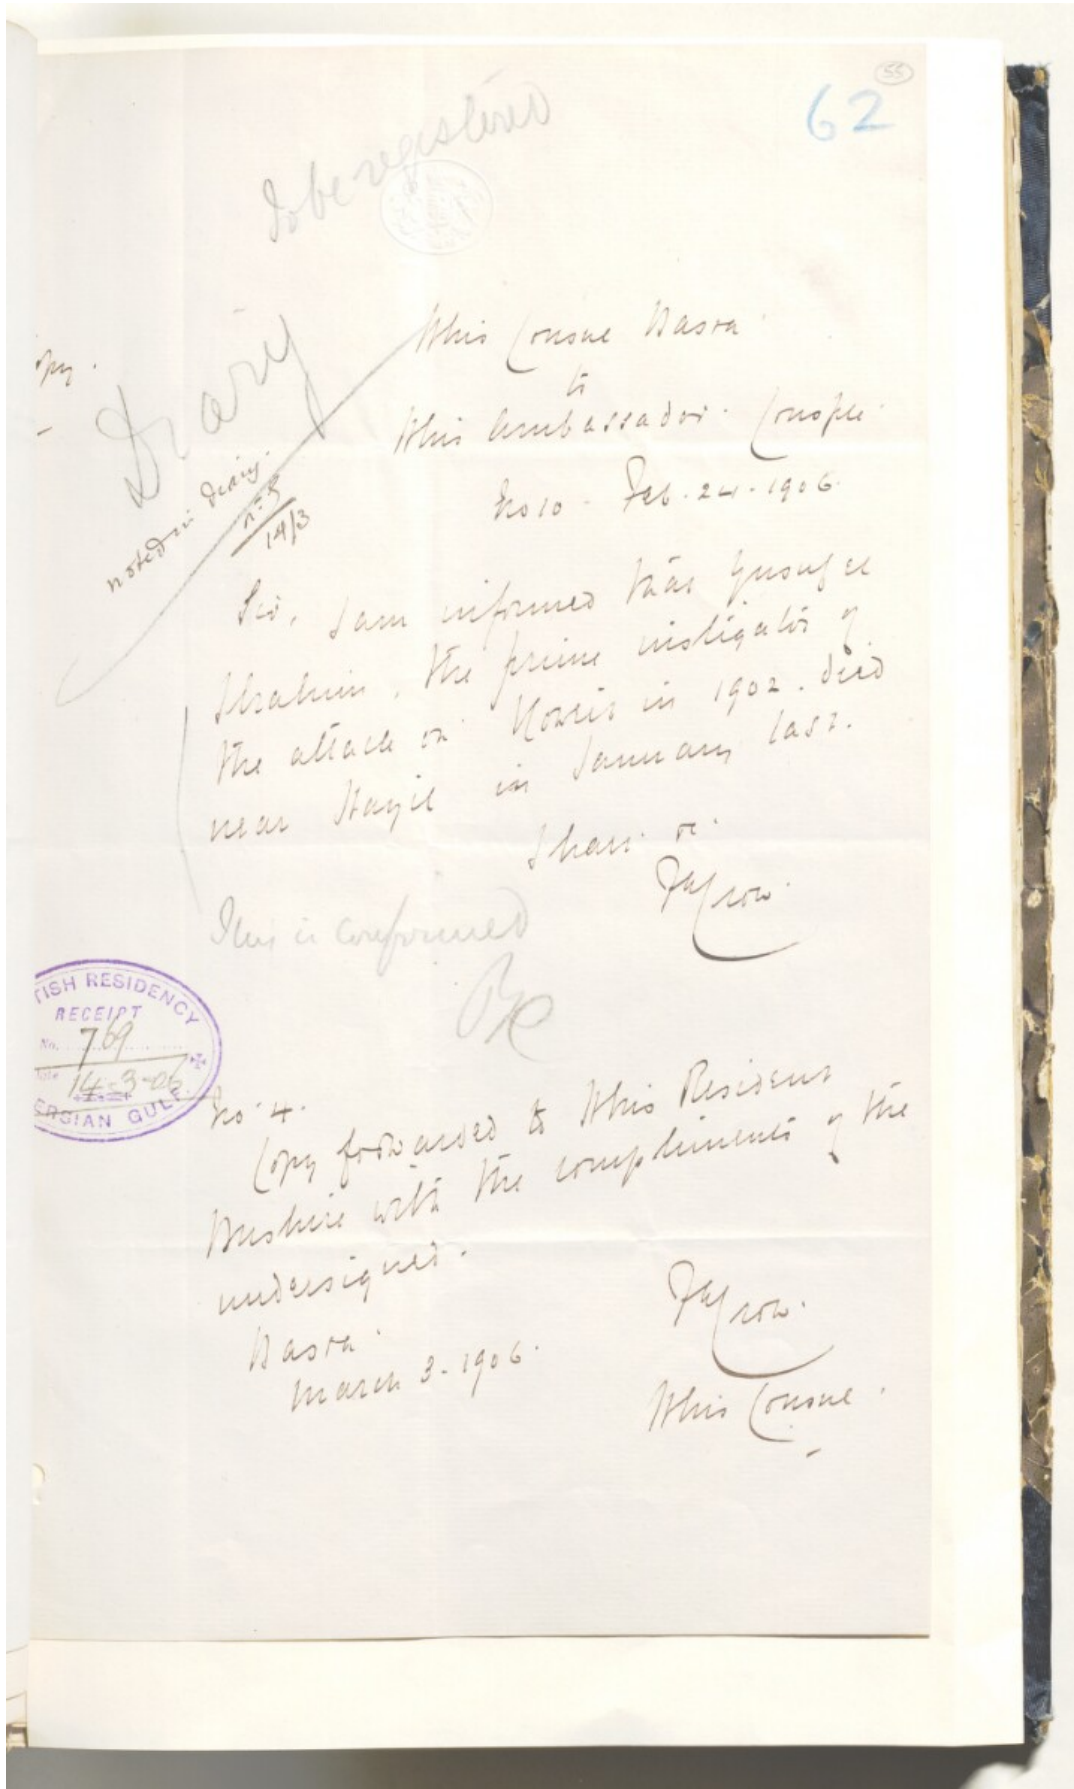 55
62
To be registered
Diary
noted in diary.
n° 5
14/3
opy.
HBMs Consul Basra
to
HBMs Ambassador. Conople
No 10 - Feb. 24 - 1906.
Sir, I am informed that Yusuf el
Ibrahim, the prime instigator of
the attack on Koweit in 1902. died
near Hayil in January last.
I have &c.
FECrow.
This is confirmed
PZC
TISH RESIDENCY
RECEIPT
No. 769
Date 14-3-06
ERSIAN GULF
No. 4.
Copy forwarded to HBMs Resident
Bushire with the compliments of the
undersigned.
Basra.
March 3 - 1906.
FECrow.
HBMs Consul.